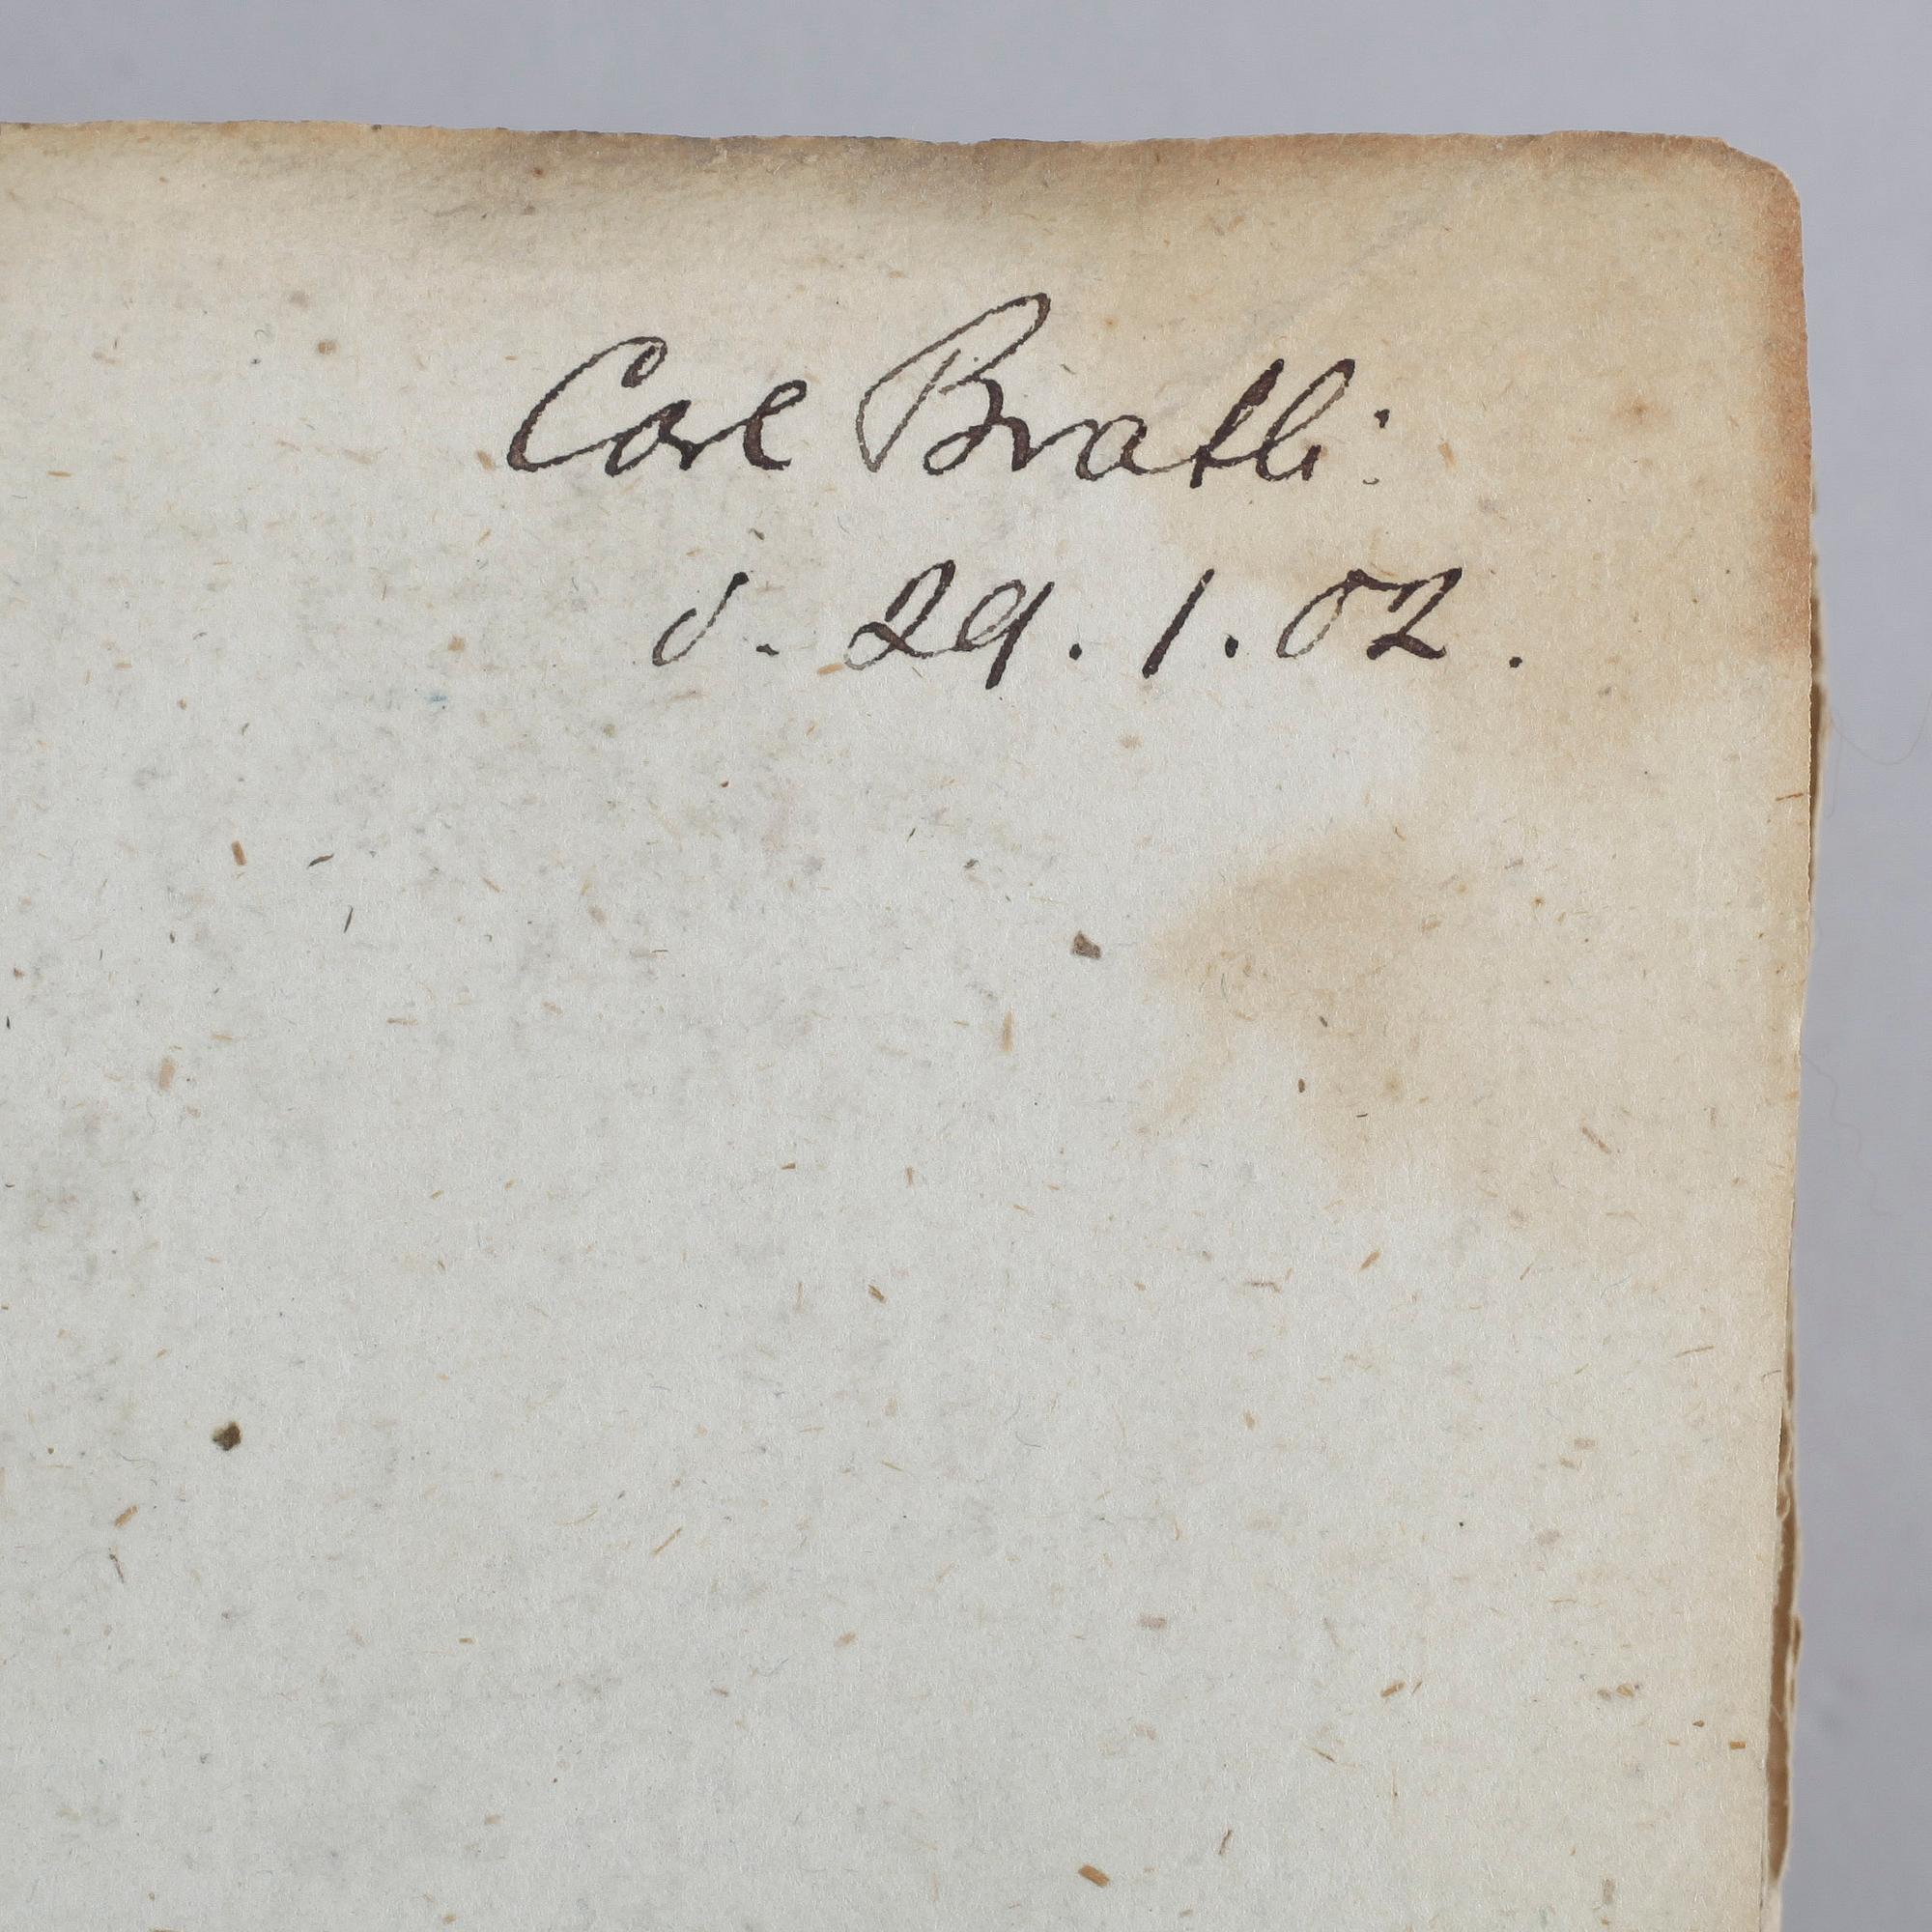 Carl Bratli.
d. 29.1.02.